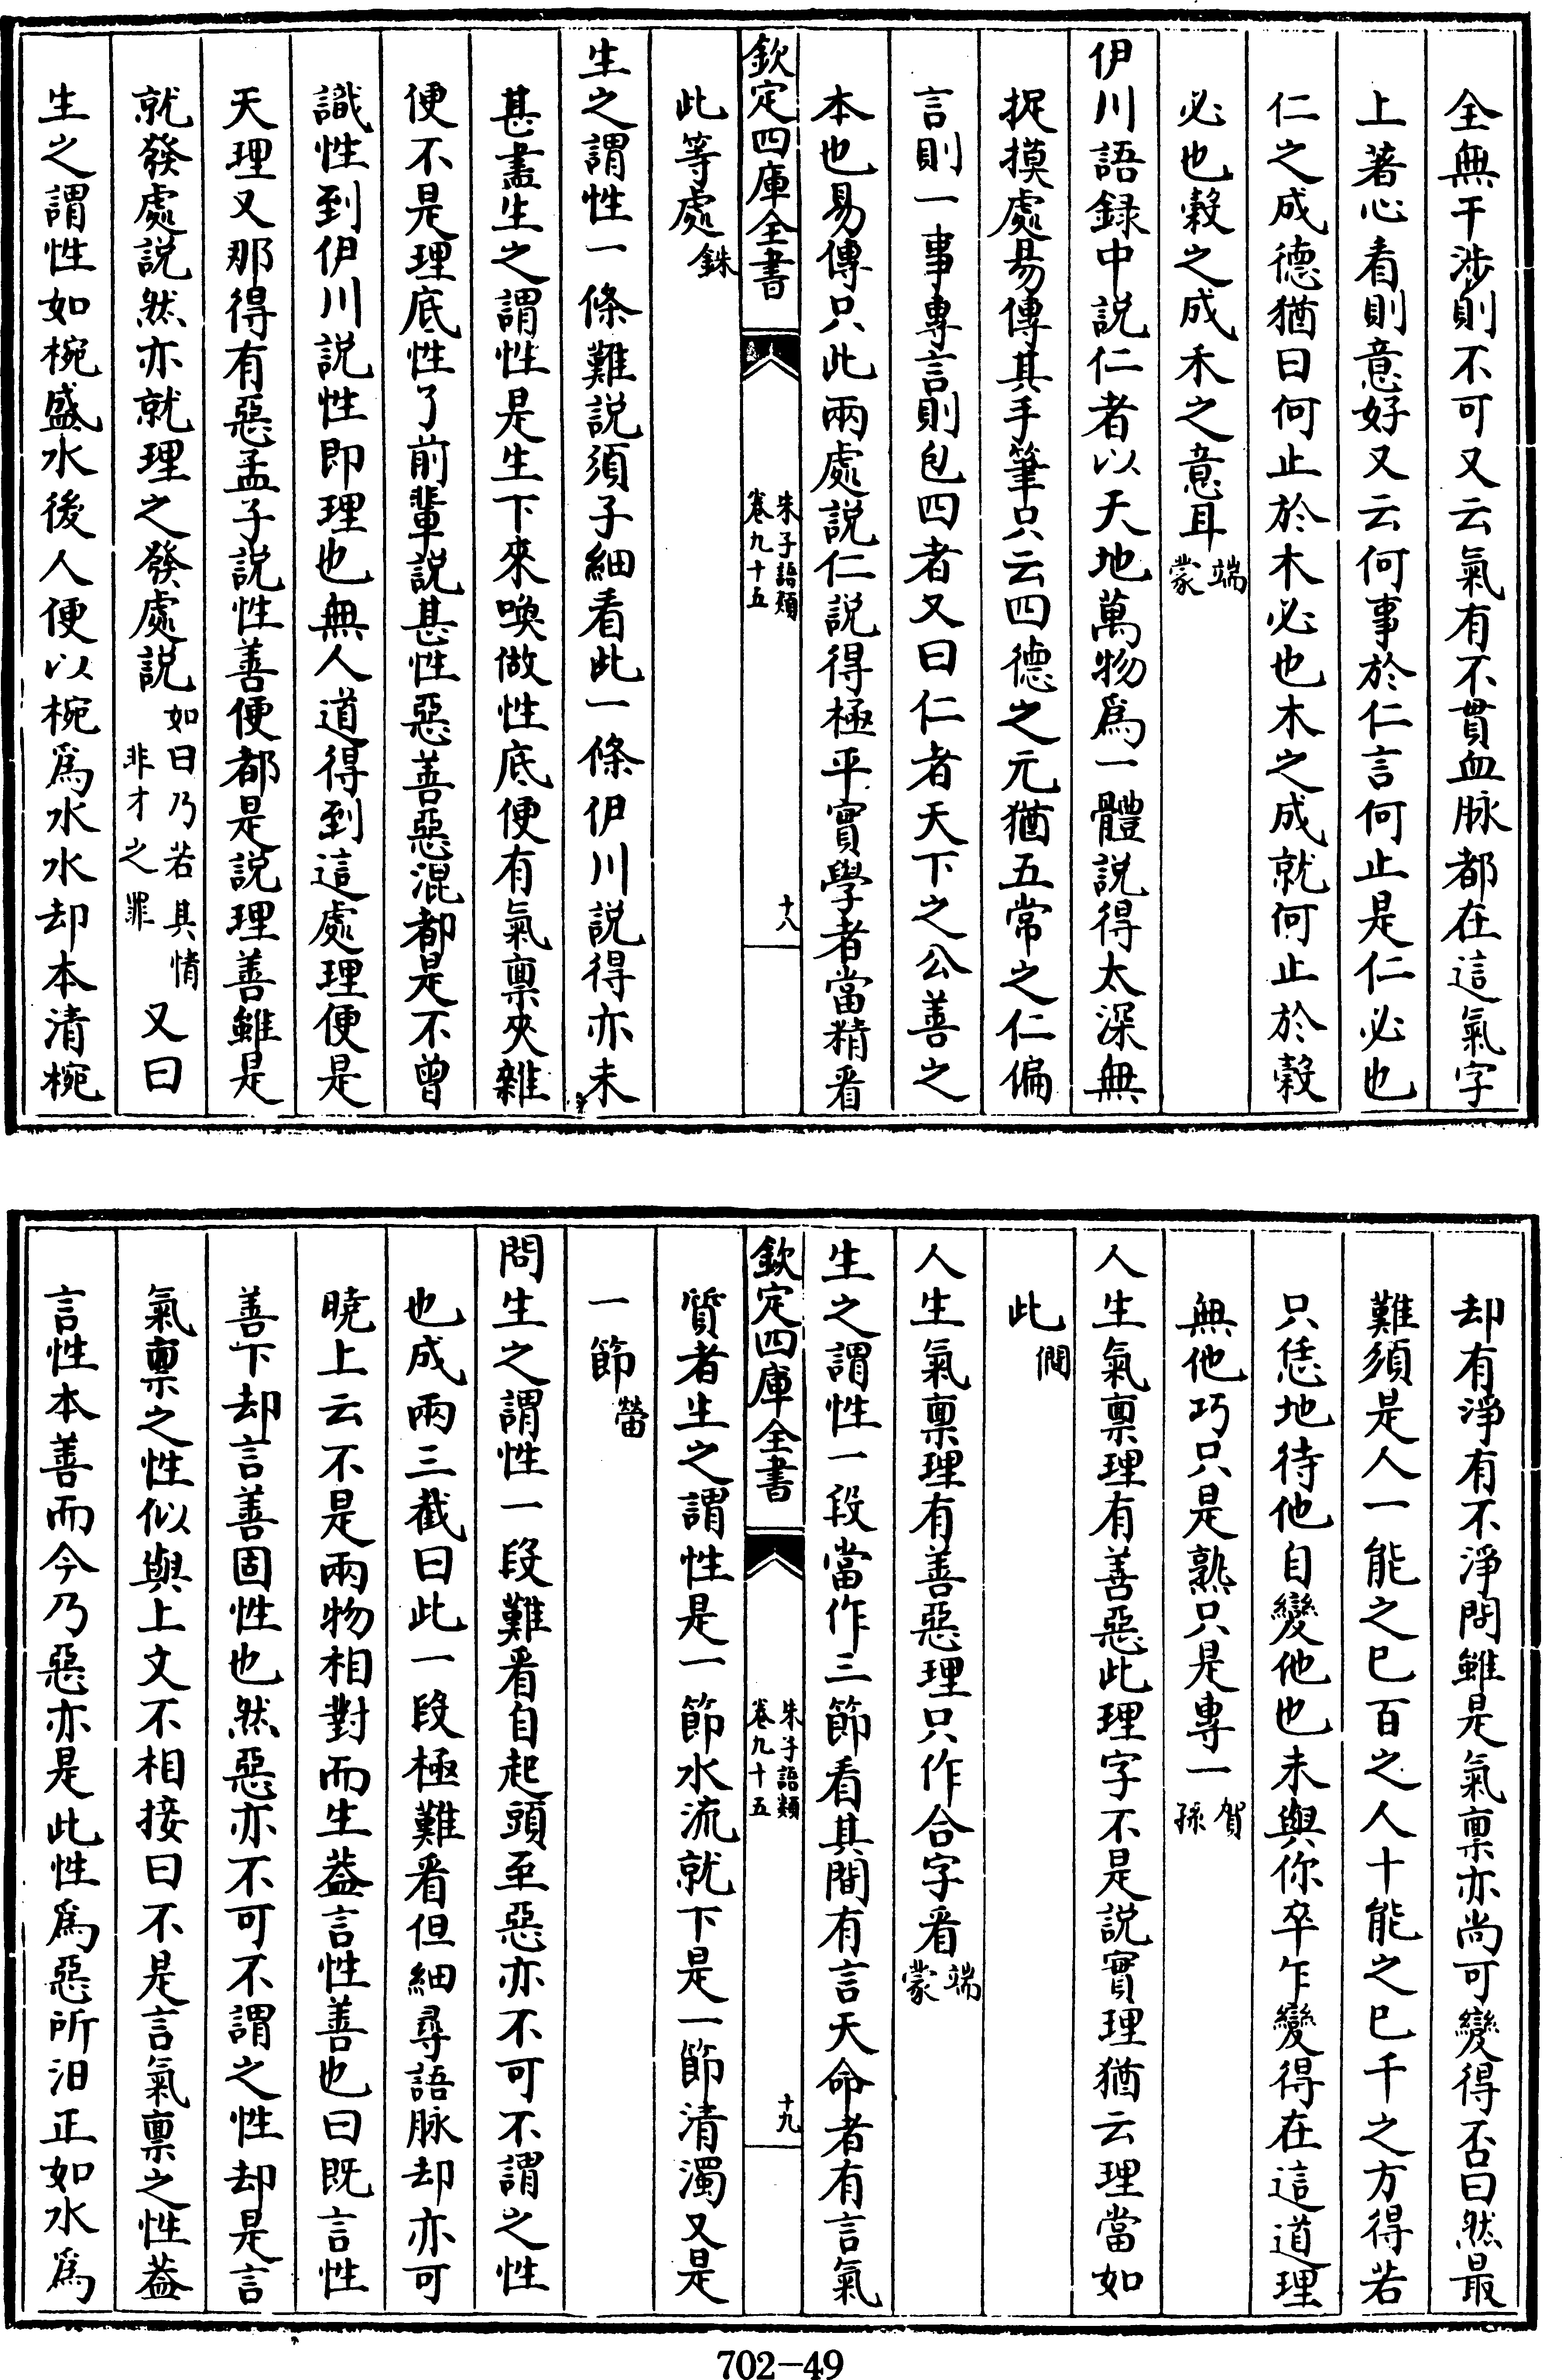 全無干涉則不可又云氣有不貫血脉都在這氣字
上著心看則意好又云何事於仁言何止是仁必也
仁之成德猶曰何止於木必也木之成就何止於穀
必也穀之成禾之意耳端蒙
伊川語録中説仁者以天地萬物爲一體説得太深無
捉摸處易傳其手筆只云四德之元猶五常之仁偏
言則一事專言則包四者又曰仁者天下之公善之
本也易傳只此兩處説仁説得極平實學者當精看
欽定四庫全書
朱子語類
卷九十五
十八
此等處銖
生之謂性一條難説須子細看此一條伊川説得亦未
甚盡生之謂性是生下來喚做性底便有氣稟夾雜
便不是理底性了前輩説甚性惡善惡混都是不曾
識性到伊川説性即理也無人道得到這處理便是
天理又那得有惡孟子説性善便都是説理善雖是
就發處説然亦就理之發處説如曰乃若其情非才之罪又曰
生之謂性如椀盛水後人便以椀爲水水却本清椀
却有淨有不淨問雖是氣稟亦尚可變得否曰然最
難須是人一能之已百之人十能之已千之方得若
只恁地待他自變他也未與你卒乍變得在這道理
無他巧只是熟只是專一賀孫
人生氣稟理有善惡此理字不是説實理猶云理當如
此僩
人生氣稟理有善惡理只作合字看端蒙
生之謂性一段當作三節看其間有言天命者有言氣
欽定四庫全書
朱子語類
卷九十五
十九
質者生之謂性是一節水流就下是一節清濁又是
一節㽦
問生之謂性一段難看自起頭至惡亦不可不謂之性
也成兩三截曰此一段極難看但細尋語脉却亦可
曉上云不是兩物相對而生葢言性善也曰既言性
善下却言善固性也然惡亦不可不謂之性却是言
氣稟之性似與上文不相接曰不是言氣稟之性葢
言性本善而今乃惡亦是此性爲惡所汨正如水爲
702-49